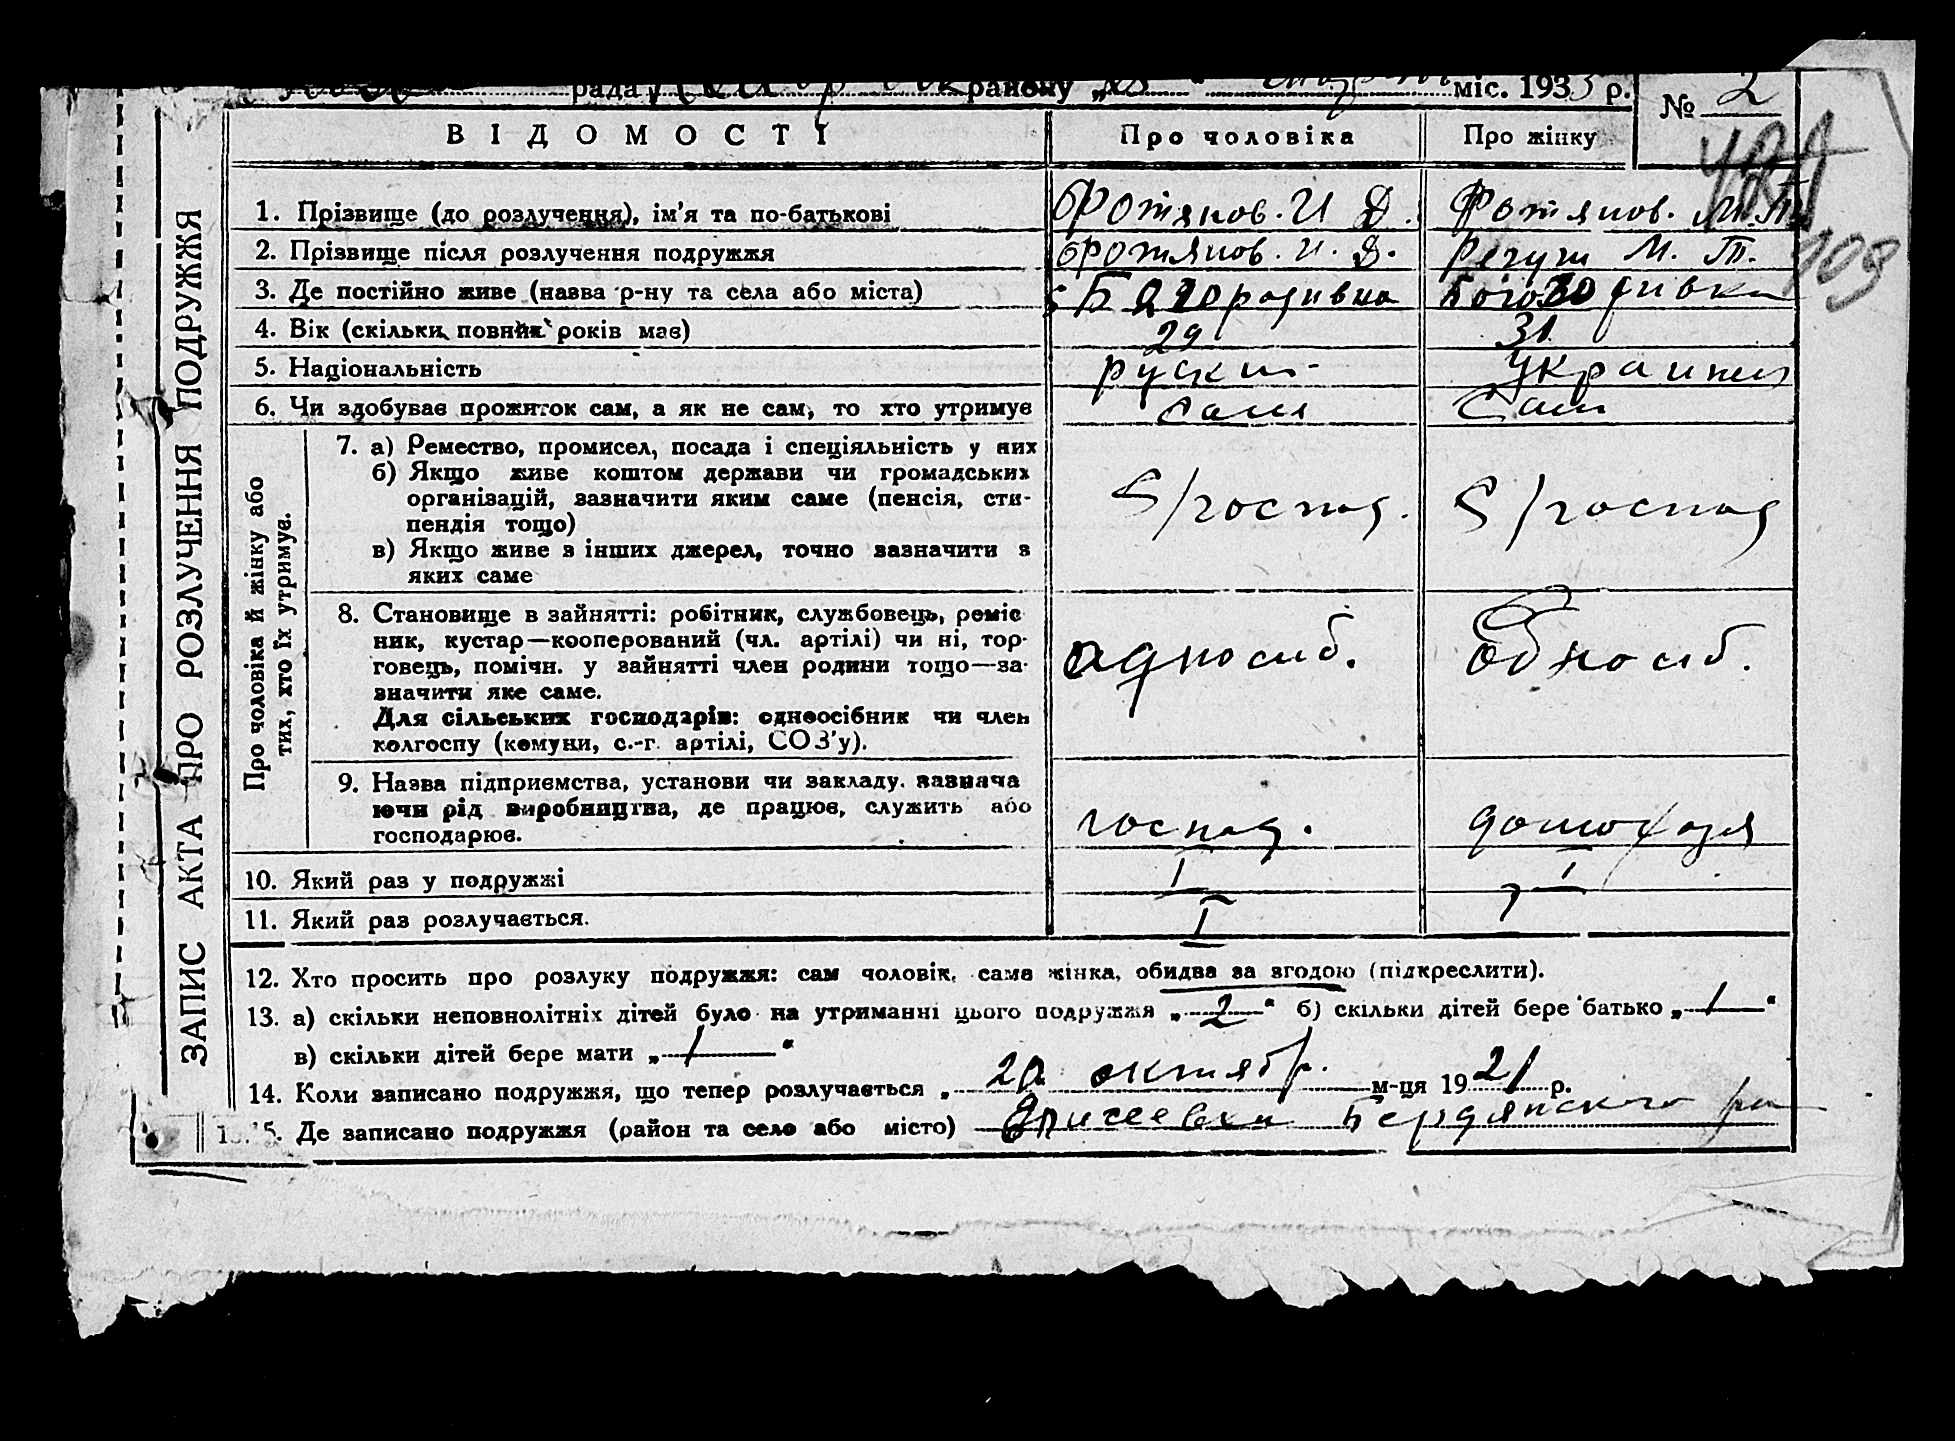 рада району „ “ міс. 1933 р. № 2
ВІДОМОСТІ Про чоловіка Про жінку
1. Прізвище (до розлучення), ім’я та по-батькові Фотянов. И Д. Фотянов. М. Т.
2. Прізвище після розлучення подружжя Фотянов. И. Д. М. Т.
109
3. Де постійно живе (назва р-ну та села або міста)
4. Вік (скільки повних років має) 29 31
5. Національність руский украинец
6. Чи здобуває прожиток сам, а як не сам, то хто утримує сам сам
ЗАПИС АКТА ПРО РОЗЛУЧЕННЯ ПОДРУЖЖЯ
Про чоловіка й жінку або
тих, хто їх утримує.
7. а) Ремество, промисел, посада і спеціяльність у них
б) Якщо живе коштом держави чи громадських
організацій, зазначити яким саме (пенсія, сти-
пендія тощо) S/господ. S/господ
в) Якщо живе з інших джерел, точно зазначити з
яких саме
8. Становище в зайнятті: робітник, службовець, реміс
ник, кустар—кооперований (чл. артілі) чи ні, тор-
говець, помічн. у зайнятті член родини тощо—за- односиб. Односиб.
значити яке саме.
Для сільських господарів: одноосібник чи член
колгоспу (комуни, с.-г. артілі, СОЗ’у).
9. Назва підприємства, установи чи закладу. зазнача
ючи рід виробництва, де працює, служить або
господарює. господ. домохозя
10. Який раз у подружжі I I
11. Який раз розлучається. I 1
12. Хто просить про розлуку подружжя: сам чоловік, сама жінка, обидва за згодою (підкреслити).
13. а) скільки неповнолітніх дітей було на утриманні цього подружжя „ 2 “ б) скільки дітей бере батько „ 1 “
в) скільки дітей бере мати „ 1 “
14. Коли записано подружжя, що тепер розлучається „ 20 октябр. м-ця 1921 р.
15. Де записано подружжя (район та село або місто) Елисеевка Бердянского ра